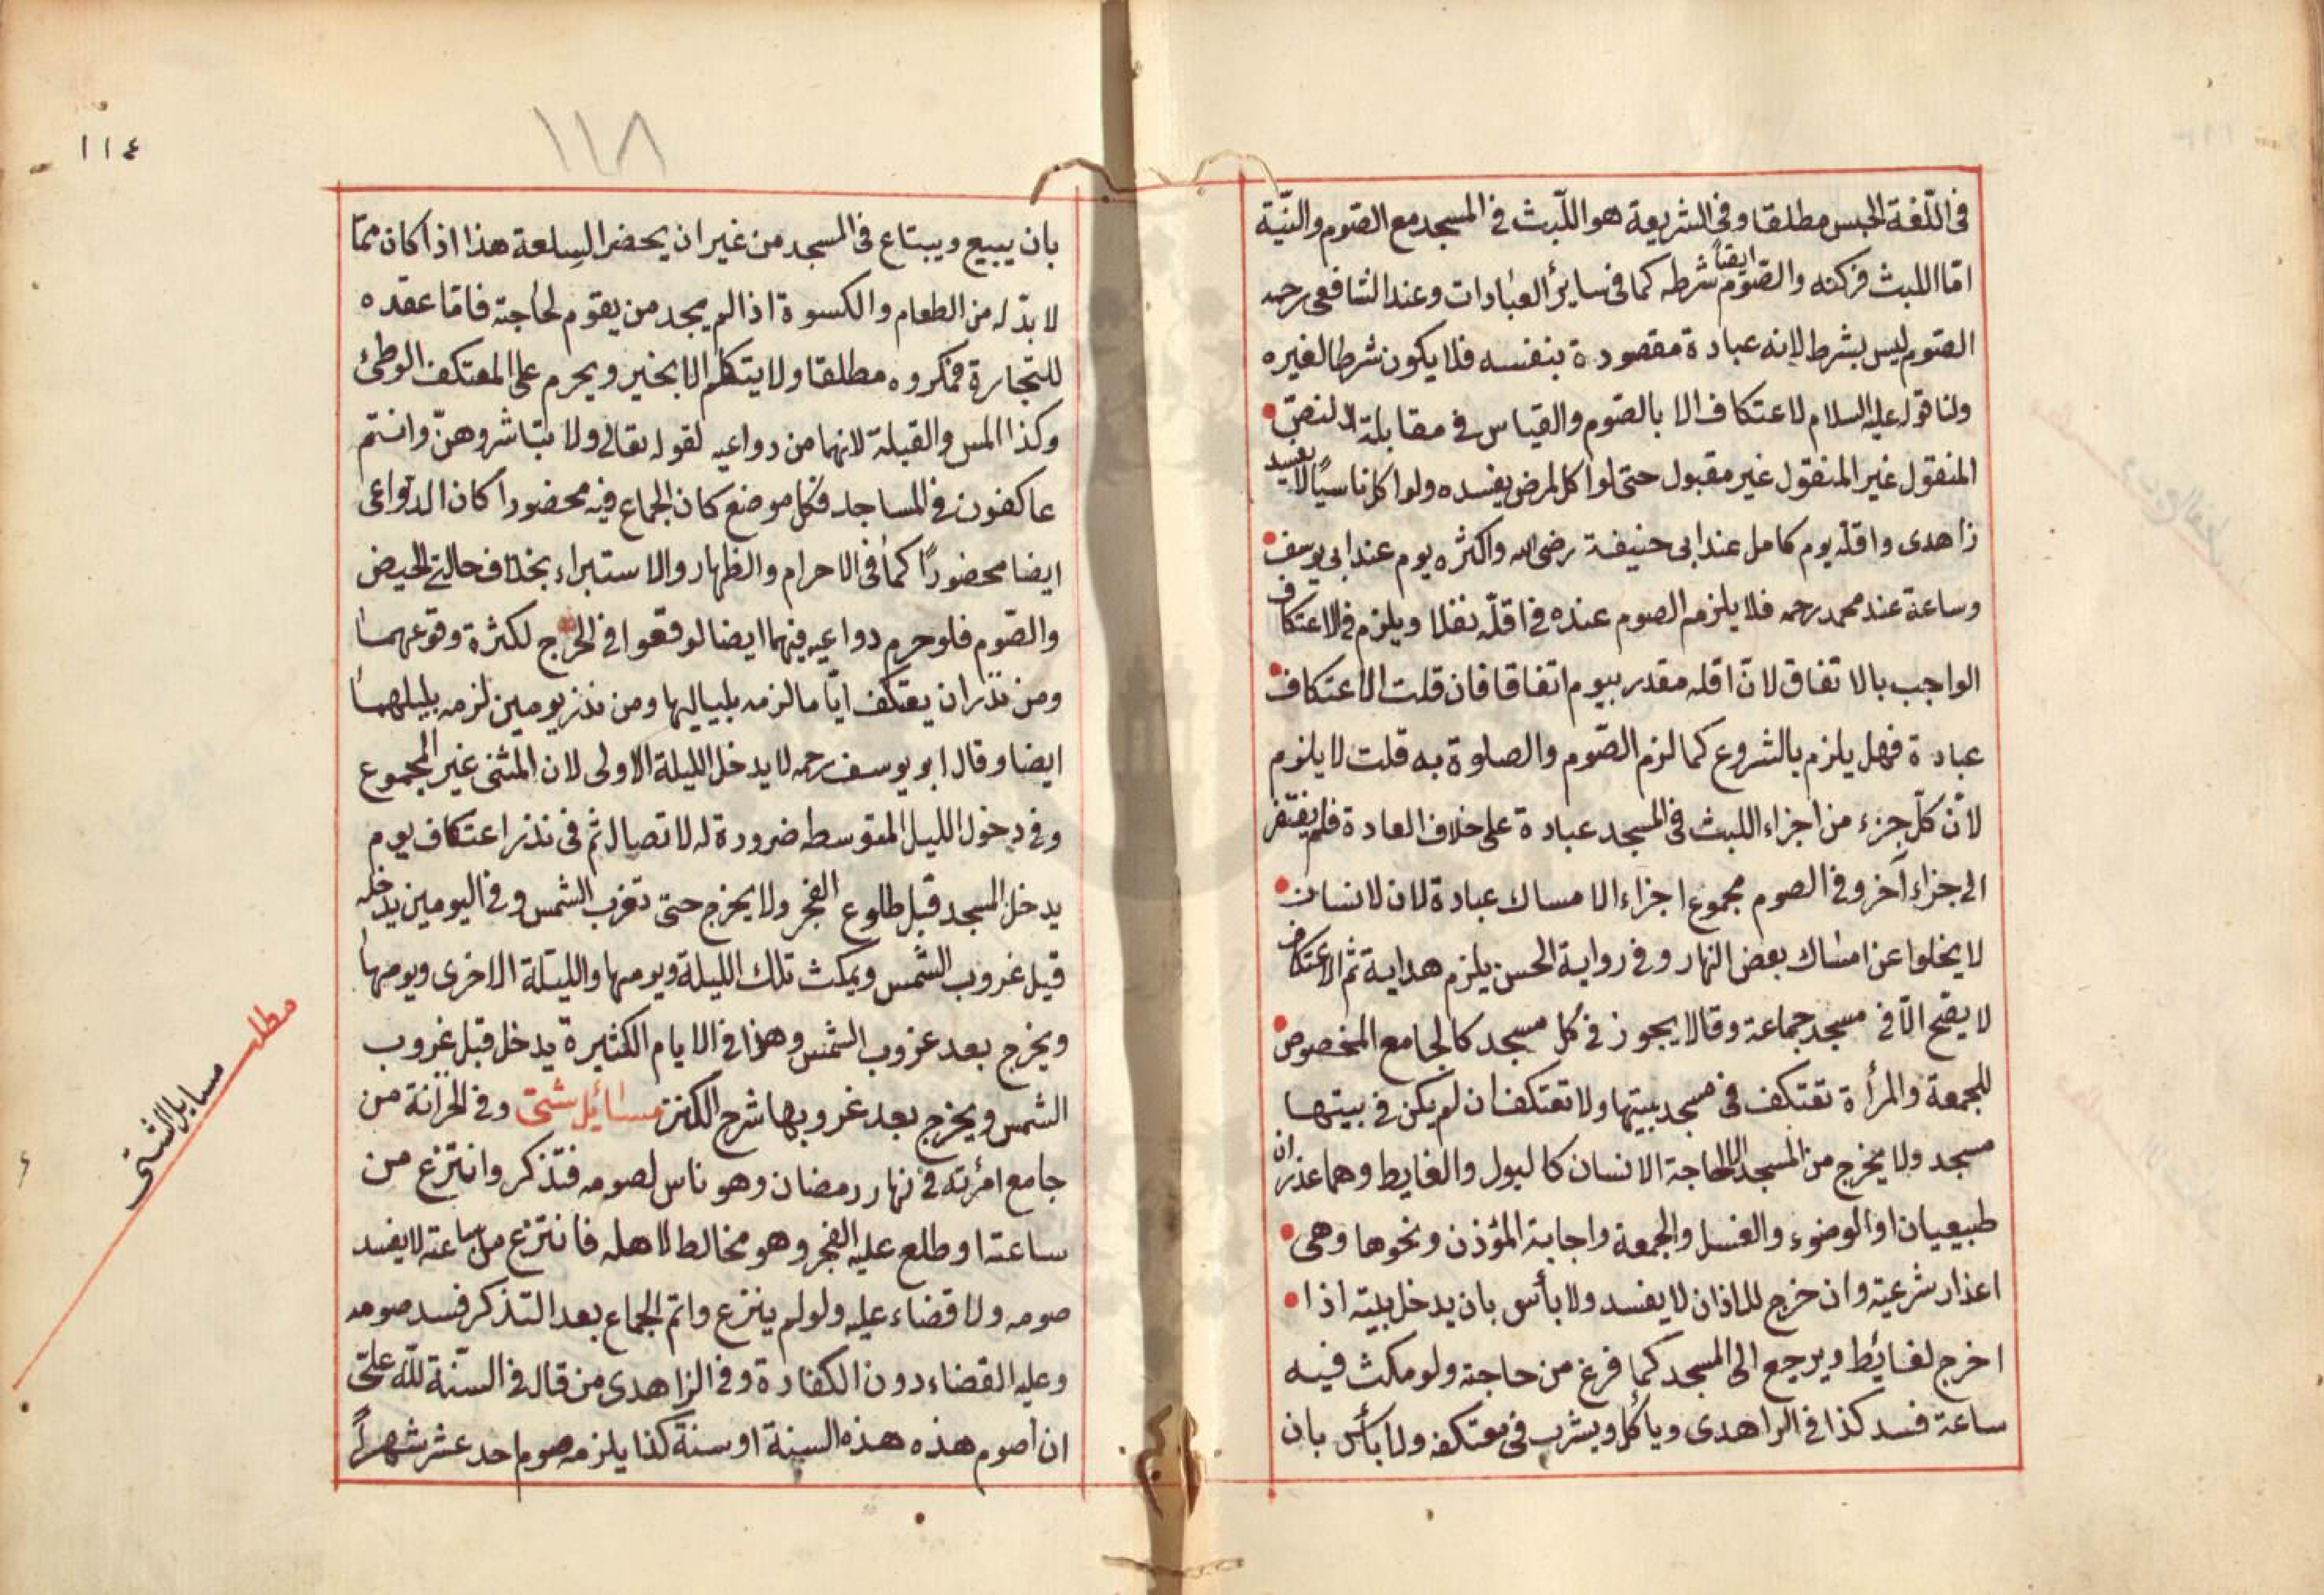 فى اللّغة الحبس مطلقا وفى الشريعة هو اللّبث فى المسجد مع الصّوم والنيّة
امّا اللبث فركنه والصّوم ايضاً شرطه كما فى ساير العبادات وعند الشافعى رحمه
الصّوم ليس بشرط لانه عبادة مقصودة بنفسه فلا يكون شرطا لغيره
ولنا قوله عليه السلام لا اعتكاف الا بالصّوم والقياس فى مقابلة النصّ
المنقول غير المنقول غير مقبول حتى لو اكل لمرض يفسده ولو اكل ناسيًا لا يفسد
زاهدى واقلّه يوم كامل عند ابى حنيفة رضى الله واكثره يوم عند ابى يوسف
وساعة عند محمد رحمه فلا يلزمه الصوم عنده فى اقلّه نفلا ويلزم فى الاعتكاف
الواجب بالاتفاق لانّ اقله مقدر بيوم اتفاقا فان قلت الاعتكاف
عبادة فهل يلزم بالشروع كما لزم الصّوم والصلوة به قلت لا يلزم
لانّ كلّ جزء من اجزاء اللبث فى المسجد عبادة على خلاف العادة فلم يفتقر
الى جزاء آخر وفى الصوم مجموع اجزاء الامساك عبادة لان لانسان
لا يخلوا عن امساك بعض النهار وفى رواية الحسن يلزم هداية ثم الاعتكاف
لا يصّح الّا فى مسجد جماعة وقالا يجوز فى كل مسجد كالجامع المخصوص
للجمعة والمرأة تعتكف فى مسجد بيتها ولا تعتكف ان لم يكن فى بيتها
مسجد ولا يخرج من المسجد الا لحاجة الانسان كالبول والغايط وهما عذران
طبيعيان او الوضوء والغسل والجمعة واجابة المؤذن ونحوها وهى
اعذار شرعية وان خرج للاذان لا يفسد ولا بأس بان يدخل بيته اذا
اخرج لغائط ويرجع الى المسجد كما فرغ من حاجته ولو مكث فيه
ساعة فسد كذا فى الزاهدى ويأكل ويشرب فى معتكفه ولا بأس بان
١١٤
١١٨
بان يبيع ويبتاع فى المسجد من غير ان يحضر السلعة هذا اذا كان ممّا
لا بدّ له من الطعام والكسوة اذا لم يجد من يقوم لحاجته فامّا عقده
للتجارة فمكروه مطلقا ولا يتكلم الا بخير ويحرم على المعتكف الوطئ
وكذا المس والقبلة لانهما من دواعيه لقوله تعالى ولا تباشروهنّ وانتم
عاكفون فى المساجد فكل موضع كان الجماع فيه محضورا كان الدّواعى
ايضا محضورًا كما فى الاحرام والظهار والاستبراء بخلاف حالتى الحيض
والصّوم فلو حرم دواعيه فيهما ايضا لوقعوا فى الحرج لكثرة وقوعهما
ومن نذر ان يعتكف ايّاما لزمه بلياليها ومن نذر يومين لزمه بليلهما
ايضا وقال ابو يوسف رحمه لا يدخل الليلة الاولى لان المثنى غير المجموع
وفى دخول الليل المتوسطه ضرورة له لاتصال ثم فى نذر اعتكاف يوم
يدخل المسجد قبل طلوع الفجر ولا يخرج حتى تغرب الشمس وفى اليومين يدخله
قبل غروب الشمس ويمكث تلك الليلة ويومها والليلة الاخرى ويومها
ويخرج بعد غروب الشمس وهذا فى الايام الكثيرة يدخل قبل غروب
الشمس ويخرج بعد غروبها شرح الكنز مسائل شتى وفى الخزانة من
جامع امرئته فى نهار رمضان وهو ناس لصومه فتذكر وانتزع من
ساعته او طلع عليه الفجر وهو مخالط لاهله فانتزع من ساعته لا يفسد
صومه ولا قضاء عليه ولو لم ينتزع واتم الجماع بعد التذكر فسد صومه
وعليه القضاء دون الكفارة وفى الزاهدى من قال فى السّنة للّه علىّ
ان اصوم هذه هذه السنة او سنة كذا يلزمه صوم احد عشر شهراً
مطلب
مسايل الشتى